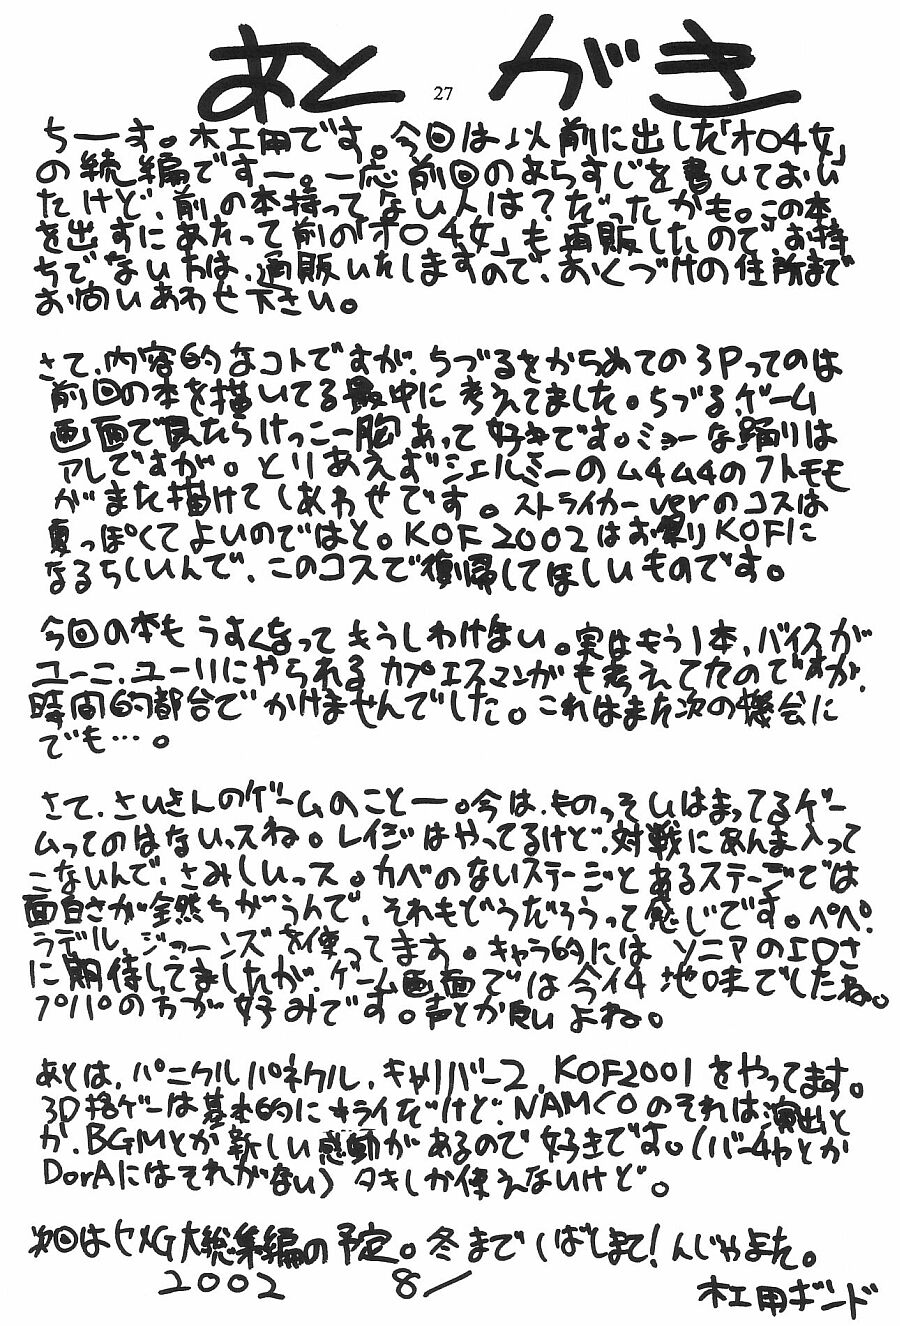 あとがき
27
ちーす。木工用です。今回は以前に出した「オロチ女」
の続編ですー。一応前回のあらすじを書いておい
たけど、前の本持ってない人は?だったかも。この本
を出すにあたって前の「オロチ女」も再販したので、お持
ちでない方は、通販いたしますので、おくづけの住所まで
お問いあわせ下さい。
さて、内容的なコトですが、ちづるをからめての3Pってのは
前回の本を描いてる最中に考えてました。ちづる、ゲーム
画面で見たらけっこー胸あって好きです。ミョーな踊りは
アレですが。とりあえずシェルミーのムチムチのフトモモ
がまた描けてしあわせです。ストライカーverのコスは
夏っぽくてよいのではと。KOF2002はお祭りKOFに
なるらしいんで、このコスで復帰してほしいものです。
今回の本もうすくなってもうしわけない。実はもう1本、バイスが
ユーニ、ユーリにやられるカプエスマンガも考えてたのですが、
時間的都合でかけませんでした。これはまた次の機会に
でも…。
さて、さいきんのゲームのことー。今は、ものっそいはまってるゲー
ムってのはないっスね。レイジはやってるけど、対戦にあんま入って
こないんで、さみしいっス。カベのないステージとあるステージでは
面白さが全然ちがうんで、それもどうだろうって感じです。ペペ、
ラデル、ジョーンズを使ってます。キャラ的にはソニアのエロさ
に期待してましたが、ゲーム画面では今イチ地味でしたね。
プルプルの方が好みです。声とか良いよね。
あとは、パニクルパネクル、キャリバー2、KOF2001をやってます。
3D格ゲーは基本的にキライだけど、NAMCOのそれは演出と
か、BGMとか新しい感動があるので好きです。(バーチャとか
DorAにはそれがない)タキしか使えないけど。
次回はヒメG大総集編の予定。冬までしばしまて!んじゃまた。
2002 8/
木工用ボンド